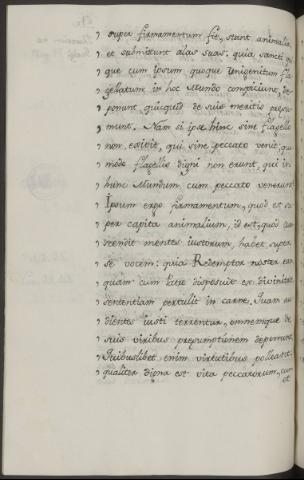 , supra firmamentum fit, stant animalia,
, et submittunt alas suas: quia sancti qui
, que cum ipsum quoque Unigenitum fla
, gellatum in hoc Mundo conspiciunt, de
, ponunt quicquid de suis meritis presu
, munt. Nam si ipse hinc sine flagello
, non exibit, qui sine peccato venit, quo
, modo flagellis digni non erunt, qui in
, hunc Mundum cum peccato venerunt
, Ipsum ergo firmamentum, quod est su
, per capita animalium, id est, quod tran
, scendit mentes iustorum, habet super
, se vocem: quia Redemptor noster
, quam cum Patre disposuit ex divinitate
, sententiam pertulit in carne. Quam au
, dientes iusti terrentur, omnemque de
, suis viribus presumptionem deponunt
, Quibuslibet enim virtutibus polleant,
, qualiter digna est vita peccatorum, cum
et